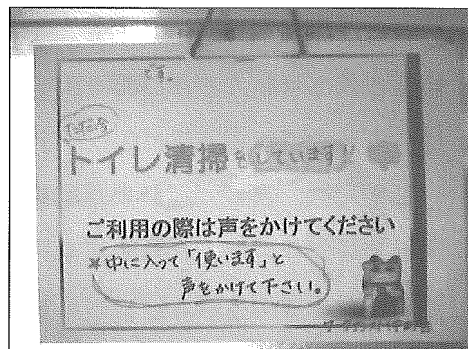 です。
ただ今
トイレ清掃をしています
ご利用の際は声をかけてください
*中に入って「使います」と
声をかけて下さい。